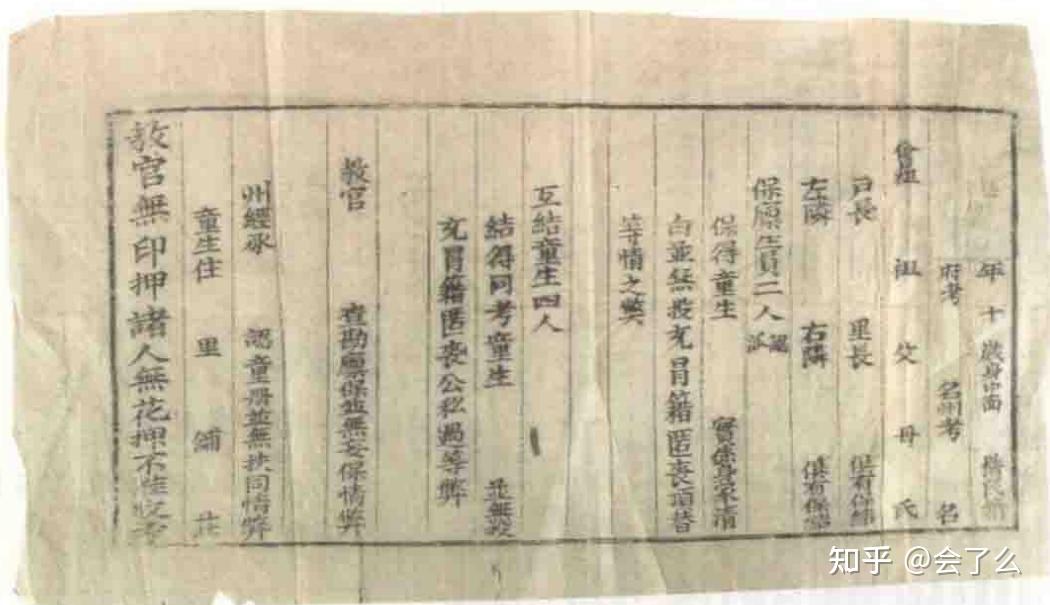 年十 歲身中面
府考 名州考 名
曾祖 祖 父 母 氏
戶長 里長 俱有保結
左隣 右隣 俱有保
保廪生員二人
認派
保得童生 實係身家清
白並無投充冒籍匿喪頂替
等情之弊
互結童生四人
結得同考童生 並無
充冒籍匿喪公私過等弊
教官 查勘廪保並無妄保情弊
州經承 認童册並無扶同情弊
童生住 里 鋪 莊
教官無印押諸人無花押不准收考
知乎 @会了么